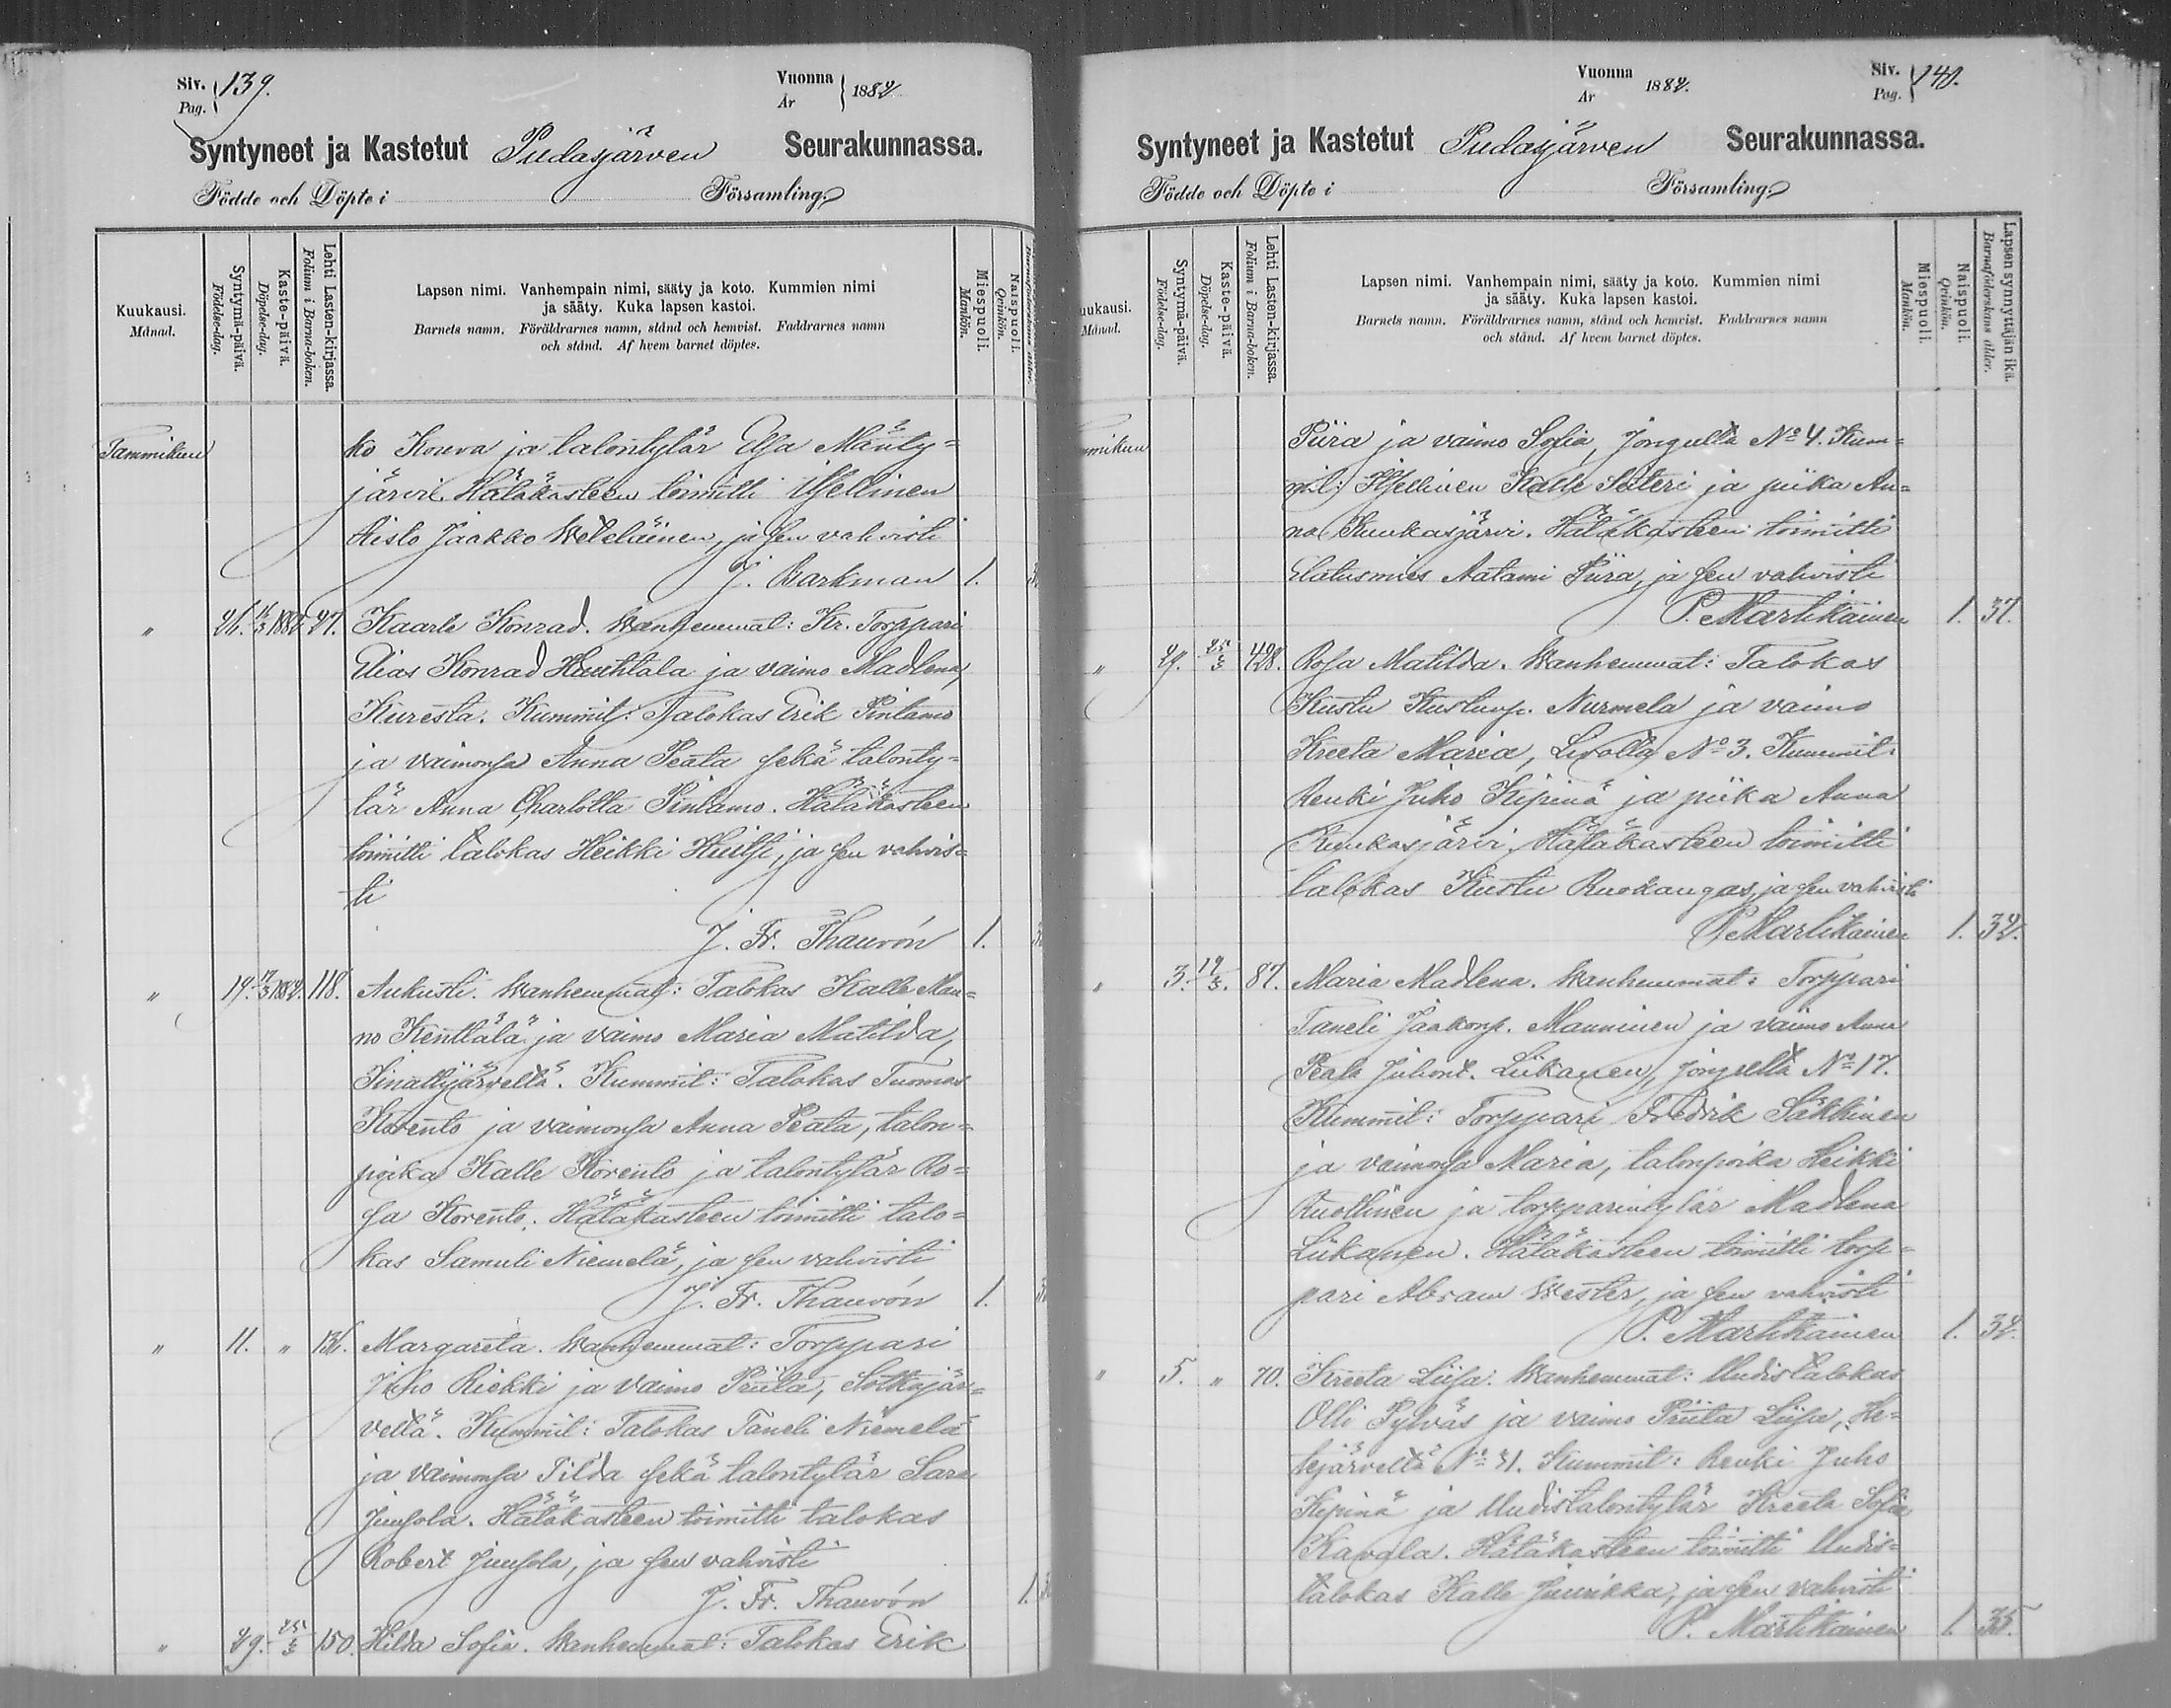 Siv. 139.
Pag.
Vuonna 1882
År
Syntyneet ja Kastetut Pudasjärven Seurakunnassa.
Födde och Döpte i Församling.
Kuukausi.
Månad.
Syntymä-päivä.
Födelse-dag.
Kaste-päivä.
Döpelse-dag.
Lehti Lasten-kirjassa.
Folium i Barna-boken.
Lapsen nimi. Vanhempain nimi, sääty ja koto. Kummien nimi
ja sääty. Kuka lapsen kastoi.
Barnets namn. Föräldrarnes namn, stånd och hemvist. Faddrarnes namn
och stånd. Af hvem barnet döptes.
Miespuoli.
Mankön.
Naispuoli.
Qvinkön.
Tammikuu
ko Kouva ja talontytär Elsa Mänty=
järvi. Hätäkasteen toimitti Itsellinen
Risto Jaakko Weteläinen, ja sen vahvisti
J. Barkman 1.
" 26. 16/3 1882. 27. Kaarle Konrad. Wanhemmat: Kr. Torppari
Elias Konrad Hauhtala ja vaimo Madlena,
Kuresta. Kummit: Talokas Erik Pintamo
ja vaimonsa Anna Peata sekä talonty=
tär Anna Charlotta Pintamo. Hätäkasteen
toimitti talokas Heikki Hiltti, ja sen vahvis=
ti
J. Fr. Thauvón 1.
" 19. 17/3 1882. 118. Aukusti. Wanhemmat: Talokas Kalle Man=
no Kenttälä ja vaimo Maria Matilda,
Sinättijärveltä. Kummit: Talokas Tuomas
Korento ja vaimonsa Anna Peata, talon=
poika Kalle Korento ja talontytär Ro=
sa Korento. Hätäkasteen toimitti talo=
kas Samuli Niemelä, ja sen vahvisti
J. Fr. Thauvón 1.
" 11. " 136. Margareta. Wanhemmat: Torppari
Juho Riekki ja vaimo Priita, Sotkajär=
veltä. Kummit: Talokas Taneli Niemelä
ja vaimonsa Tilda sekä talontytär Sara
Juusola. Hätäkasteen toimitti talokas
Robert Juusola, ja sen vahvisti
J. Fr. Thauvón 1.
" 29. 25/3 150. Hilda Sofia. Wanhemmat: Talokas Erik
Vuonna 1882.
År
Siv. 140.
Pag.
Syntyneet ja Kastetut Pudasjärven Seurakunnassa.
Födde och Döpte i Församling.
uukausi.
Månad.
Syntymä-päivä.
Födelse-dag.
Kaste-päivä.
Döpelse-dag.
Lehti Lasten-kirjassa.
Folium i Barna-boken.
Lapsen nimi. Vanhempain nimi, sääty ja koto. Kummien nimi
ja sääty. Kuka lapsen kastoi.
Barnets namn. Föräldrarnes namn, stånd och hemvist. Faddrarnes namn
och stånd. Af hvem barnet döptes.
Miespuoli.
Mankön.
Naispuoli.
Qvinkön.
Lapsen synnyttäjän ikä.
Barnaföderskans ålder.
mmikuu
Piira ja vaimo Sofia, Jongulta No 4. Kum=
mit: Itsellinen Kalle Säteri ja piika An=
na Kuukasjärvi. Hätäkasteen toimitti
Elatusmies Aatami Piira, ja sen vahvisti
P. Martikainen 1. 37.
" 29. 25/3 428. Rosa Matilda. Wanhemmat: Talokas
Kustu Kustunp. Nurmela ja vaimo
Kreeta Maria, Livolta No 3. Kummit:
Renki Juho Kipinä ja piika Anna
Kuukasjärvi. Hätäkasteen toimitti
talokas Kustu Ruokangas, ja sen vahvisti
P. Martikainen 1. 32.
" 3. 19/3. 87. Maria Madlena. Wanhemmat: Torppari
Taneli Jaakonp. Manninen ja vaimo Anna
Peata Juhont. Liikanen, Jongulta No 17.
Kummit: Torppari Fredrik Säkkinen
ja vaimonsa Maria, talonpoika Heikki
Ruottinen ja torpparintytär Madlena
Liikanen. Hätäkasteen toimitti torp=
pari Abram Wester, ja sen vahvisti
P. Martikainen 1. 32.
" 5. " 70. Kreeta Liisa. Wanhemmat: Uudistalokas
Olli Pylväs ja vaimo Priita Liisa, He=
tejärveltä No 21. Kummit: Renki Juho
Kipinä ja Uudistalontytär Kreeta Sofia
Kavala. Hätäkasteen toimitti Uudis=
talokas Kalle Juurikka, ja sen vahvisti
P. Martikainen 1. 35.